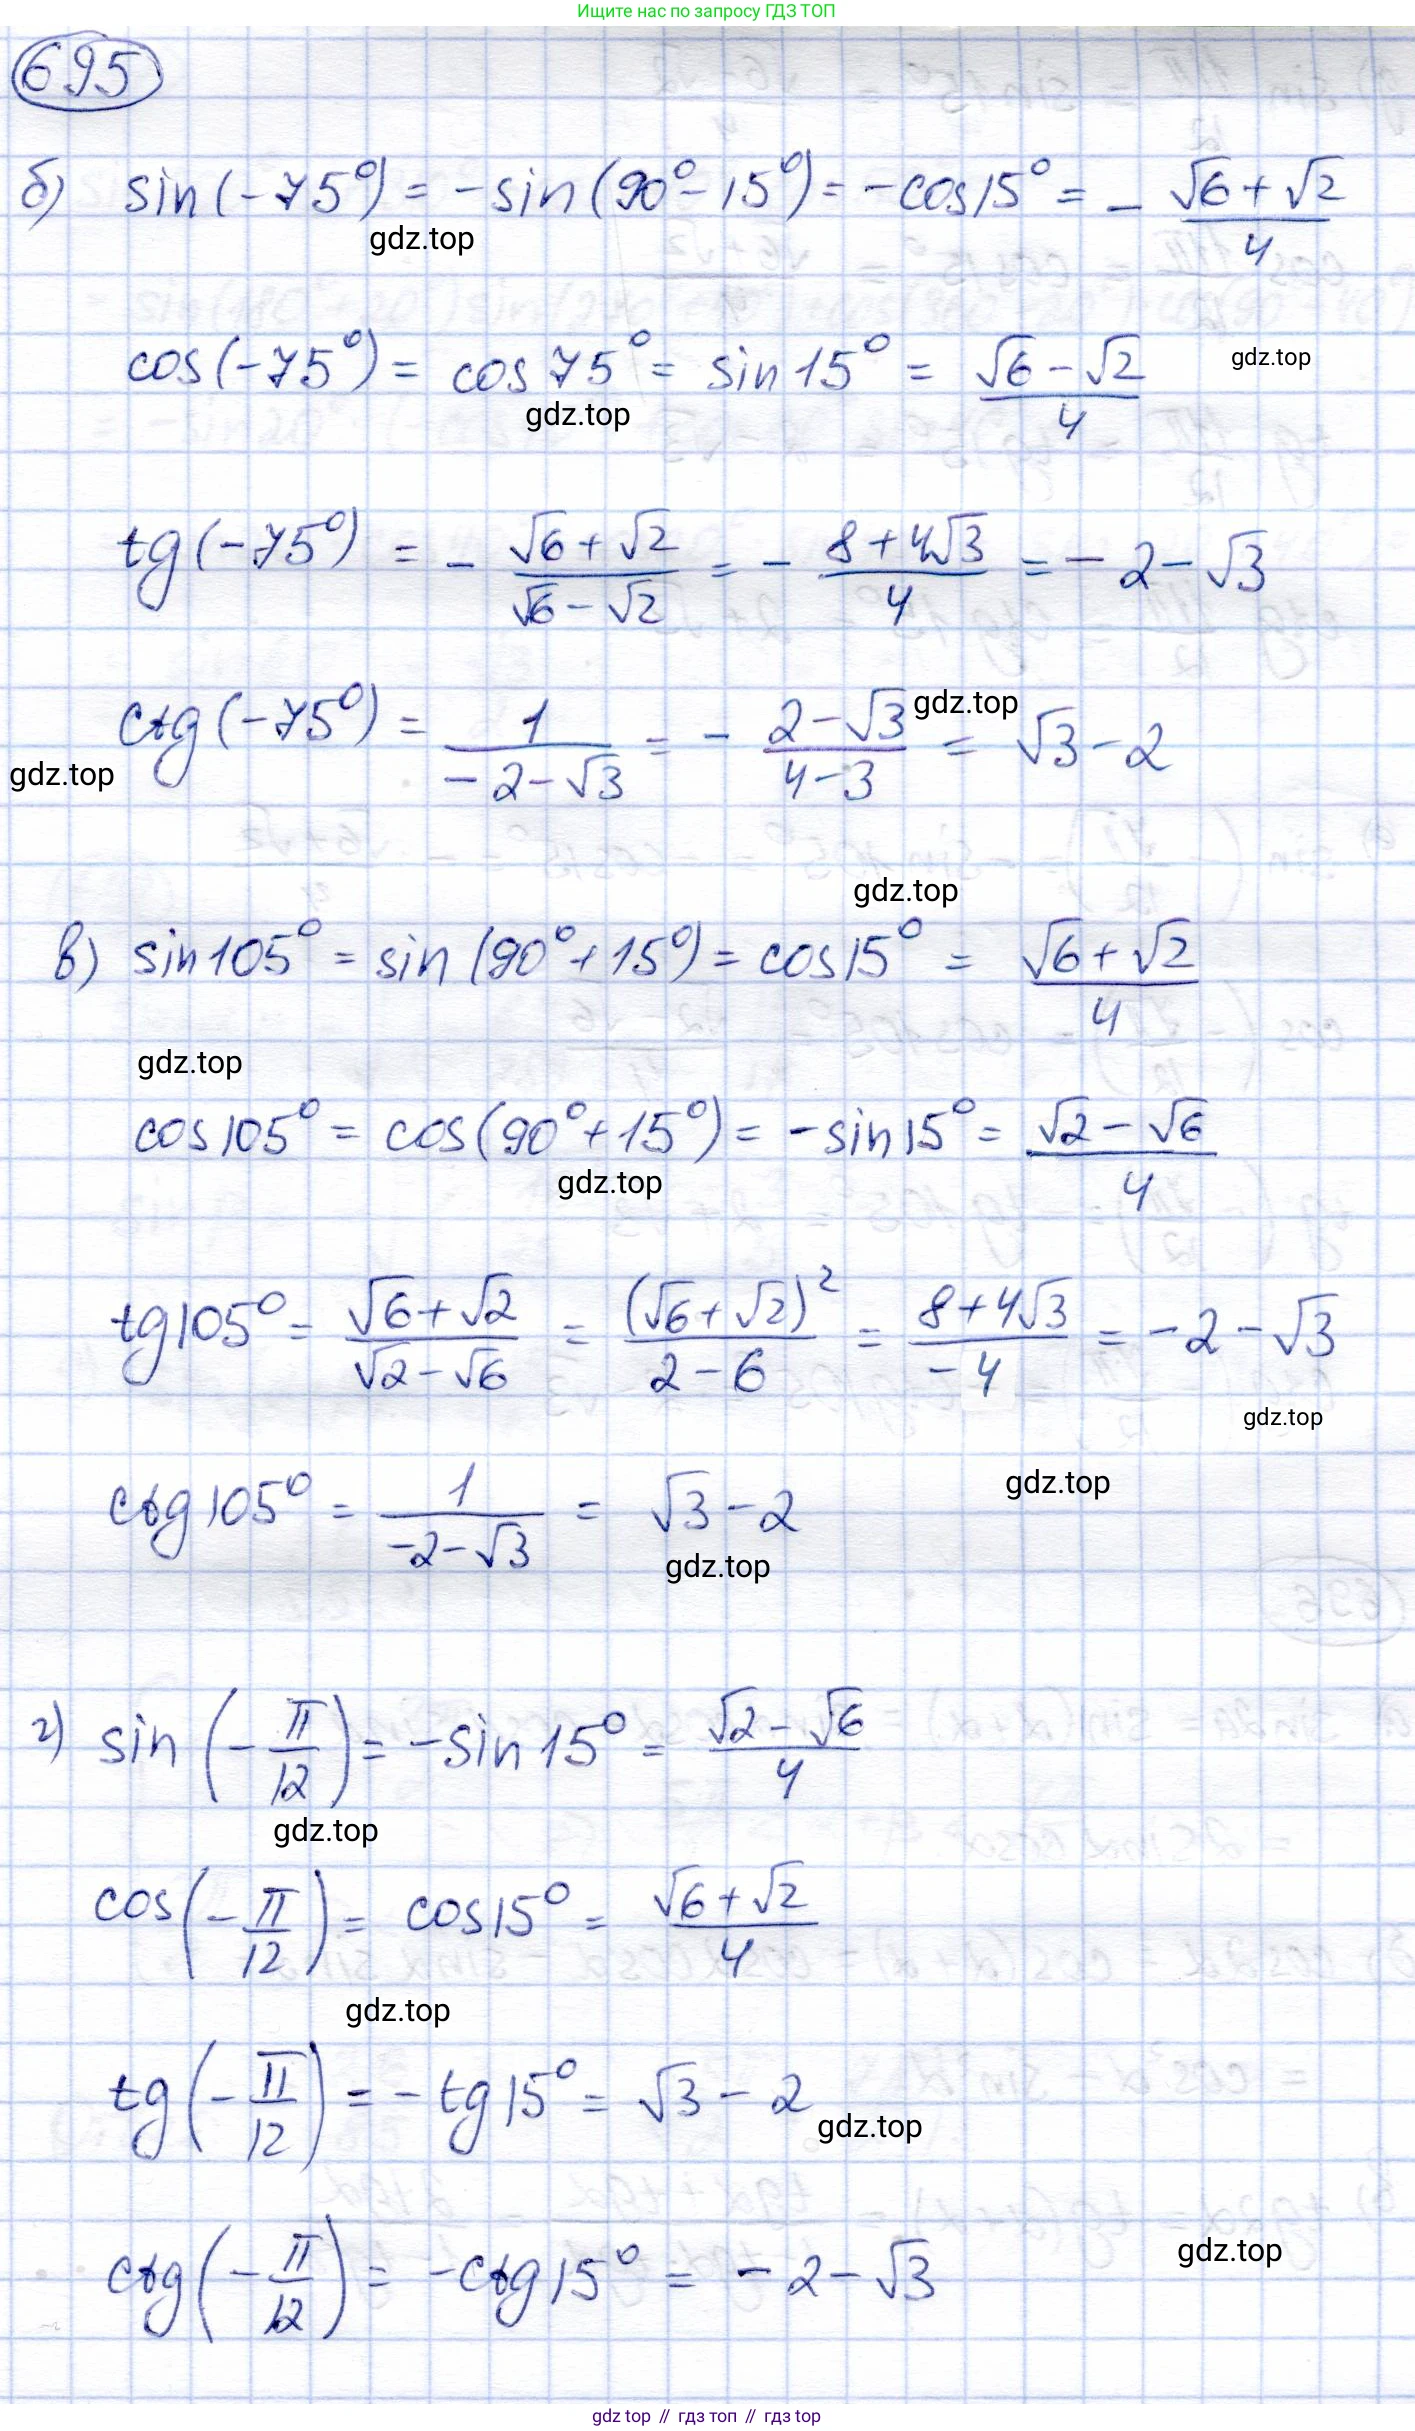 Ищите нас по запросу ГДЗ ТОП
695
б) sin(-75°) = -sin(90°-15°) = -cos15° = - (√6+√2)/4
gdz.top
cos(-75°) = cos75° = sin15° = (√6-√2)/4
gdz.top
gdz.top
tg(-75°) = - (√6+√2)/(√6-√2) = - (8+4√3)/4 = -2-√3
ctg(-75°) = 1/(-2-√3) = - (2-√3)/(4-3) = √3-2
gdz.top
gdz.top
gdz.top
в) sin105° = sin(90°+15°) = cos15° = (√6+√2)/4
gdz.top
cos105° = cos(90°+15°) = -sin15° = (√2-√6)/4
gdz.top
tg105° = (√6+√2)/(√2-√6) = (√6+√2)²/(2-6) = (8+4√3)/(-4) = -2-√3
gdz.top
ctg105° = 1/(-2-√3) = √3-2
gdz.top
gdz.top
г) sin(-π/12) = -sin15° = (√2-√6)/4
gdz.top
cos(-π/12) = cos15° = (√6+√2)/4
gdz.top
tg(-π/12) = -tg15° = √3-2
gdz.top
ctg(-π/12) = -ctg15° = -2-√3
gdz.top
gdz top // гдз топ // gdz top